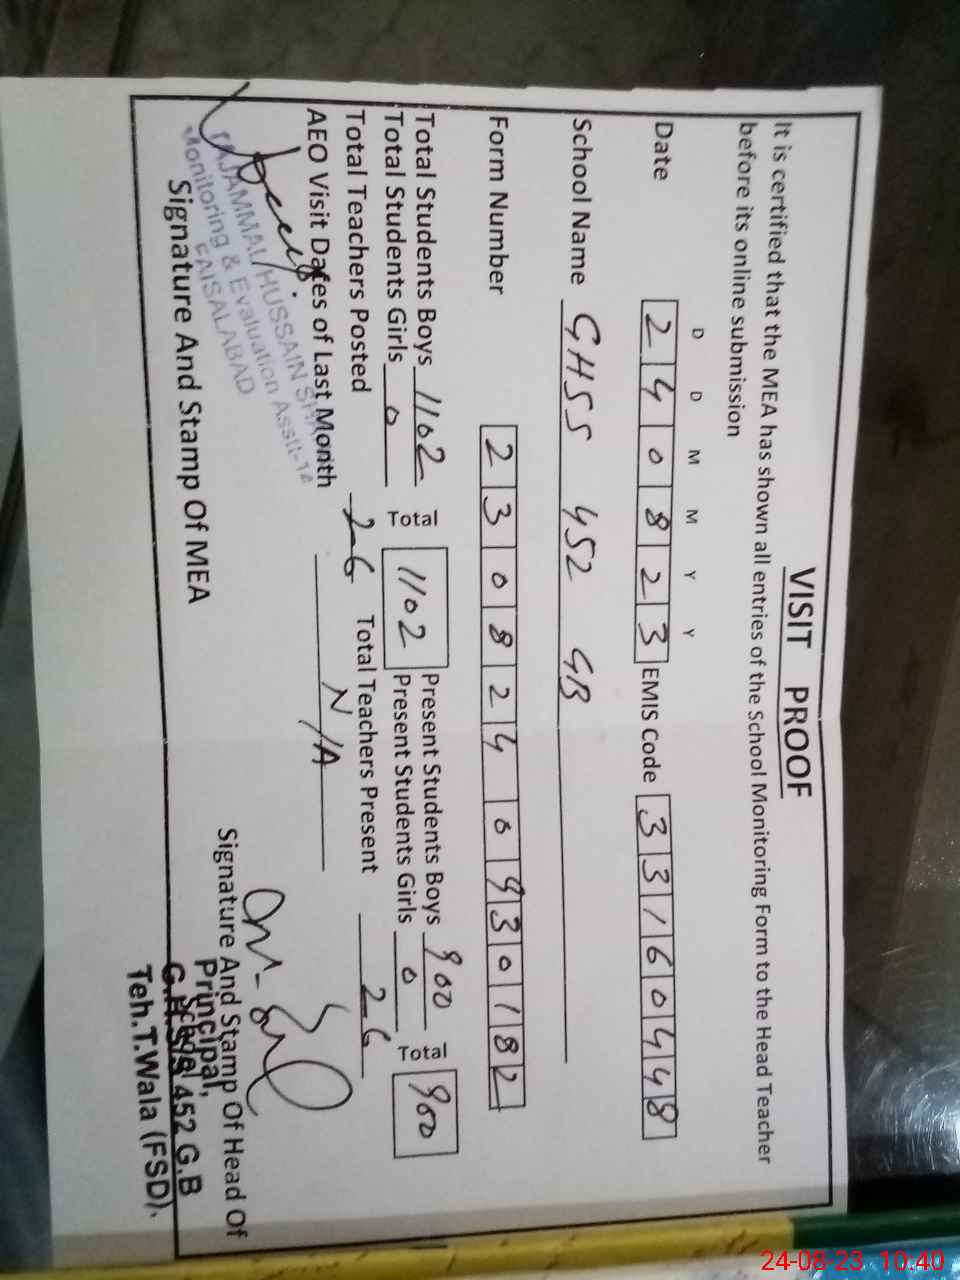 VISIT PROOF
It is certified that the MEA has shown all entries of the School Monitoring Form to the Head Teacher
before its online submission
D D M M Y Y
Date 2 4 0 8 2 3 EMIS Code 3 3 1 6 0 4 4 8
School Name GHSS 452 GB
Form Number 2 3 0 8 2 4 0 9 3 0 1 8 2
Total Students Boys 1102 Total 1102 Present Students Boys 900 Total 900
Total Students Girls 0 Present Students Girls 0
Total Teachers Posted 26 Total Teachers Present 26
AEO Visit Dates of Last Month N/A
TAJAMMAL HUSSAIN
Monitoring & Evaluation Asstt-
FAISALABAD
Signature And Stamp Of MEA
Signature And Stamp Of Head Of
School
Principal,
G.H.S.S 452 G.B
Teh.T.Wala (FSD).
24-08-23 10:40